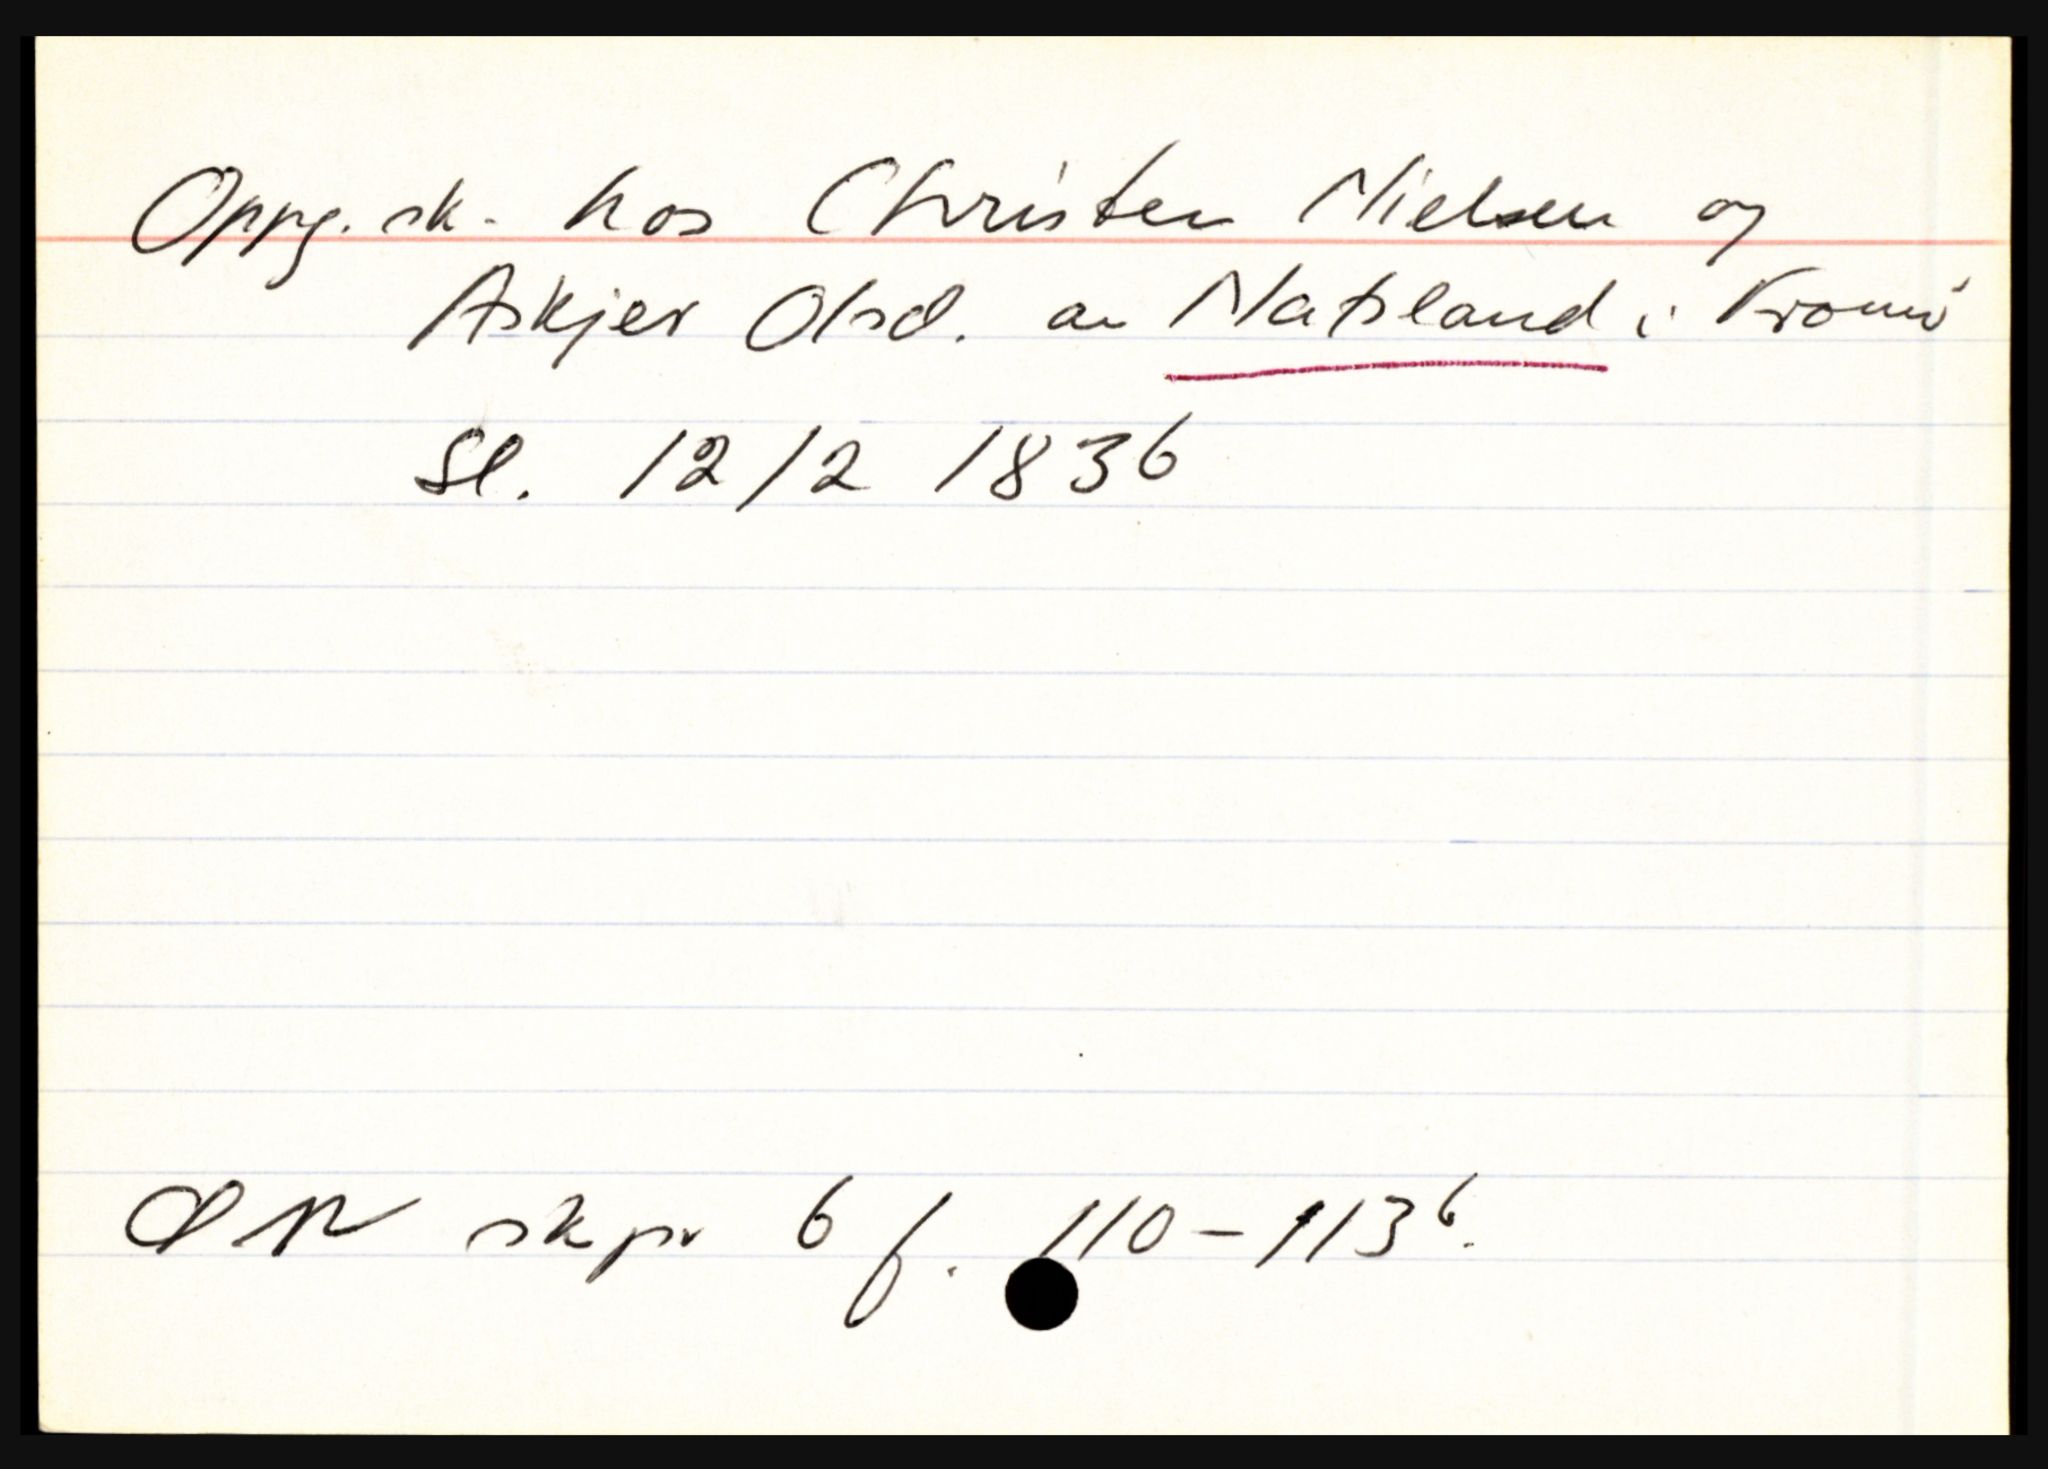 Oppg. sk. hos Christen Nielsen og
Askjer Olsd. av Natsland i Fromü
Sl. 12/2 1836
skpr 6 f. 110-113b.